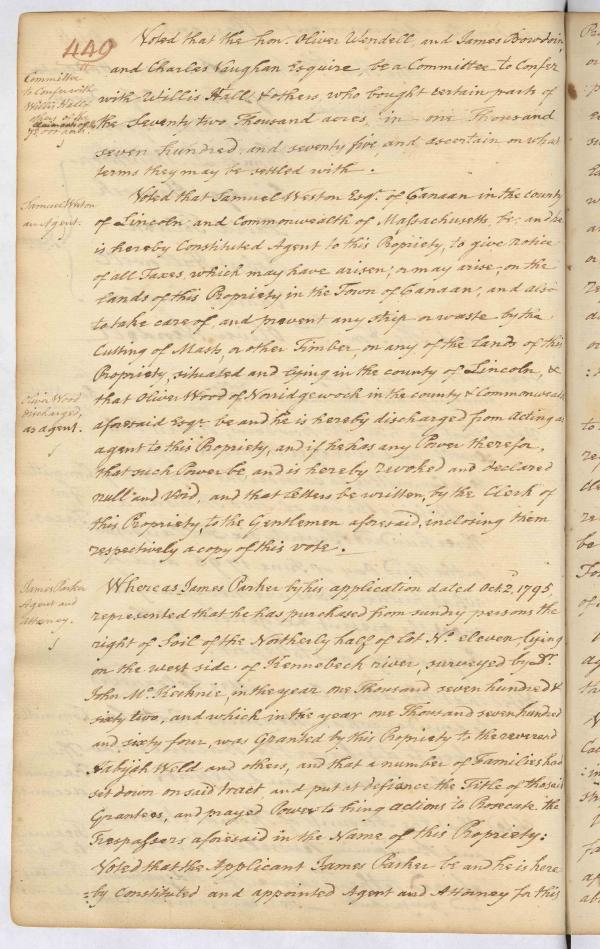 440
Voted that the hon. Oliver Wendell, and James Bowdoin,
and Charles Vaughan Esquire, be a Committee to Confer
with Willis Hall & others, who bought certain parts of
the Seventy two Thousand acres, in one Thousand
seven hundred, and seventy five, and ascertain on what
terms they may be settled with.
Committee
to Confer with
Willis Hall &
Samuel Weston
an Agent.
Voted that Samuel Weston Esqr. of Canaan in the county
of Lincoln and Commonwealth of Massachusetts, be, and he
is hereby Constituted Agent to this Propriety, to give notice
of all Taxes, which may have arisen, or may arise, on the
lands of this Propriety in the Town of Canaan, and also
to take care of, and prevent any strip or waste by the
Cutting of Masts, or other Timber, on any of the lands of this
Propriety, situated and lying in the county of Lincoln, &
that Oliver Wood of Norridgewock in the county & Commonwealth
aforesaid Esqr. be and he is hereby discharged from Acting as
agent to this Propriety, and if he has any Power therefor,
that such Power be, and is hereby revoked and declared
null and void, and that letters be written, by the Clerk of
this Propriety, to the Gentlemen aforesaid, inclosing them
respectively a copy of this vote.
Oliver Wood
discharged,
as agent.
James Parker
Agent and
Attorney.
Whereas James Parker by his application dated Oct. 2d. 1795,
represented that he has purchased from sundry persons the
right of Soil of the Northerly half of lot No. eleven, lying
on the west side of Kennebeck river, surveyed by Dr.
John McKechnie, in the year one Thousand seven hundred &
sixty two, and which in the year one Thousand seven hundred
and sixty four, was Granted by this Propriety to the reverend
Habijah Weld and others, and that a number of Families had
set down on said tract and put at defiance the Title of the said
Grantees, and prayed Power to bring actions to Prosecute the
Trespassers aforesaid in the Name of this Propriety:
Voted that the Applicant James Parker be and he is here
=by Constituted and appointed Agent and Attorney for this